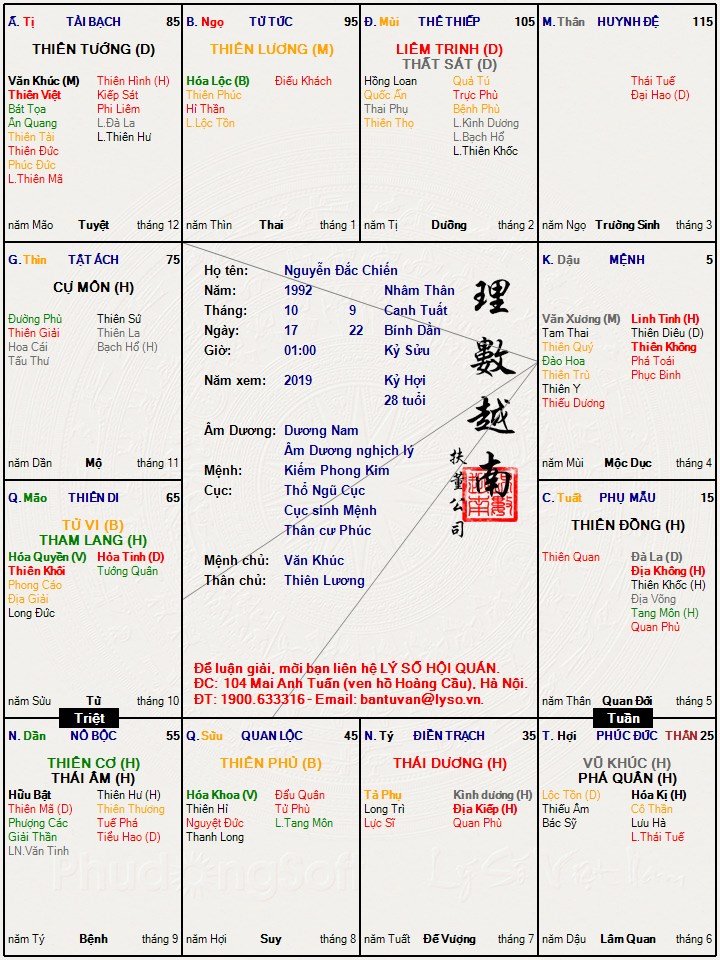 Ấ. Tị TÀI BẠCH 85
THIÊN TƯỚNG (D)
Văn Khúc (M) Thiên Hình (H)
Thiên Việt Kiếp Sát
Bát Tọa Phi Liêm
Ân Quang L.Đà La
Thiên Tài L.Thiên Hư
Thiên Đức
Phúc Đức
L.Thiên Mã
năm Mão Tuyệt tháng 12
B. Ngọ TỬ TỨC 95
THIÊN LƯƠNG (M)
Hóa Lộc (B) Điếu Khách
Thiên Phúc
Hỉ Thần
L.Lộc Tồn
năm Thìn Thai tháng 1
Đ. Mùi THÊ THIẾP 105
LIÊM TRINH (D)
THẤT SÁT (D)
Hồng Loan Quả Tú
Quốc Ấn Trực Phù
Thai Phụ Bệnh Phù
Thiên Thọ L.Kình Dương
L.Bạch Hổ
L.Thiên Khốc
năm Tị Dưỡng tháng 2
M. Thân HUYNH ĐỆ 115
Thái Tuế
Đại Hao (D)
năm Ngọ Trường Sinh tháng 3
G. Thìn TẬT ÁCH 75
CỰ MÔN (H)
Đường Phù Thiên Sứ
Thiên Giải Thiên La
Hoa Cái Bạch Hổ (H)
Tấu Thư
năm Dần Mộ tháng 11
Họ tên: Nguyễn Đắc Chiến
Năm: 1992 Nhâm Thân
Tháng: 10 9 Canh Tuất
Ngày: 17 22 Bính Dần
Giờ: 01:00 Kỷ Sửu
Năm xem: 2019 Kỷ Hợi
28 tuổi
Âm Dương: Dương Nam
Âm Dương nghịch lý
Mệnh: Kiếm Phong Kim
Cục: Thổ Ngũ Cục
Cục sinh Mệnh
Thân cư Phúc
Mệnh chủ: Văn Khúc
Thân chủ: Thiên Lương
理數越南
扶董公司
Để luận giải, mời bạn liên hệ LÝ SỐ HỘI QUÁN.
ĐC: 104 Mai Anh Tuấn (ven hồ Hoàng Cầu), Hà Nội.
ĐT: 1900.633316 - Email: bantuvan@lyso.vn.
K. Dậu MỆNH 5
Văn Xương (M) Linh Tinh (H)
Tam Thai Thiên Diêu (D)
Thiên Quý Thiên Không
Đào Hoa Phá Toái
Thiên Trù Phục Binh
Thiên Y
Thiếu Dương
năm Mùi Mộc Dục tháng 4
Q. Mão THIÊN DI 65
TỬ VI (B)
THAM LANG (H)
Hóa Quyền (V) Hỏa Tinh (D)
Thiên Khôi Tướng Quân
Phong Cáo
Địa Giải
Long Đức
năm Sửu Tử tháng 10
C. Tuất PHỤ MẪU 15
THIÊN ĐỒNG (H)
Thiên Quan Đà La (D)
Địa Không (H)
Thiên Khốc (H)
Địa Võng
Tang Môn (H)
Quan Phủ
năm Thân Quan Đới tháng 5
Triệt
Tuần
N. Dần NÔ BỘC 55
THIÊN CƠ (H)
THÁI ÂM (H)
Hữu Bật Thiên Hư (H)
Thiên Mã (D) Thiên Thương
Phượng Các Tuế Phá
Giải Thần Tiểu Hao (D)
LN.Văn Tinh
năm Tý Bệnh tháng 9
Q. Sửu QUAN LỘC 45
THIÊN PHỦ (B)
Hóa Khoa (V) Đẩu Quân
Thiên Hỉ Tử Phù
Nguyệt Đức L.Tang Môn
Thanh Long
năm Hợi Suy tháng 8
N. Tý ĐIỀN TRẠCH 35
THÁI DƯƠNG (H)
Tả Phụ Kình dương (H)
Long Trì Địa Kiếp (H)
Lực Sĩ Quan Phù
năm Tuất Đế Vượng tháng 7
T. Hợi PHÚC ĐỨC THÂN 25
VŨ KHÚC (H)
PHÁ QUÂN (H)
Lộc Tồn (D) Hóa Kị (H)
Thiếu Âm Cô Thần
Bác Sỹ Lưu Hà
L.Thái Tuế
năm Dậu Lâm Quan tháng 6
PhudongSoft
Lý Số Việt Nam